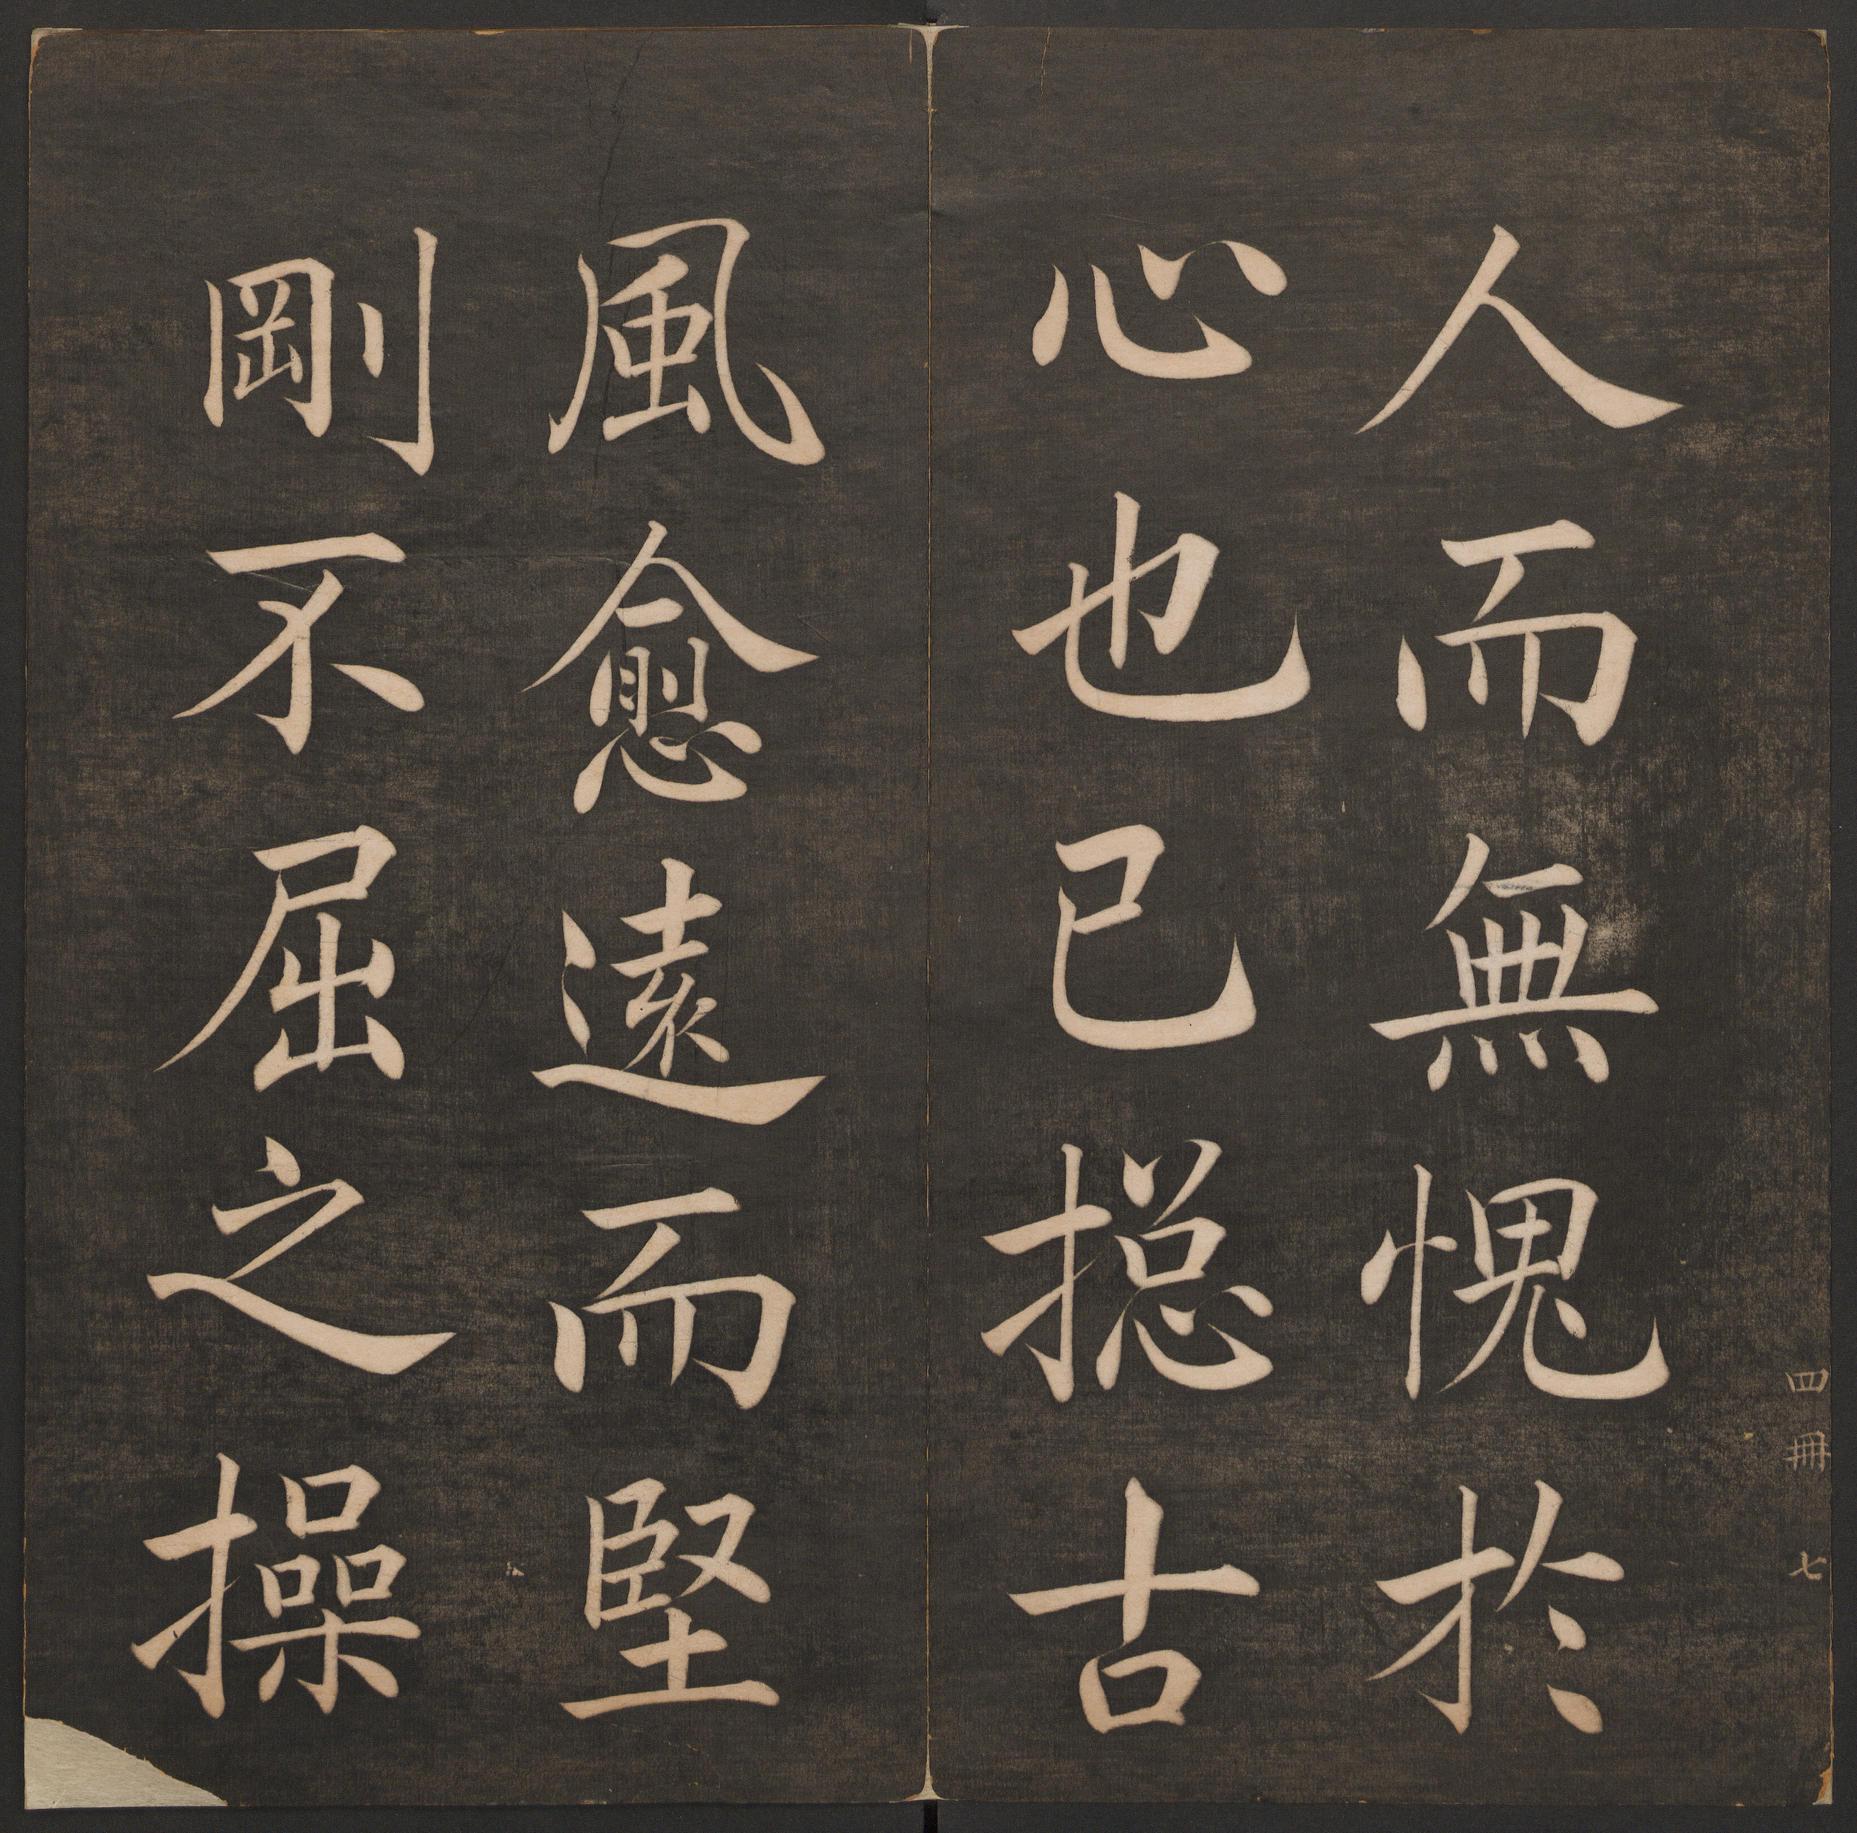 四冊 七
人而無愧於
心也已摠古
風愈遠而堅
剛不屈之操